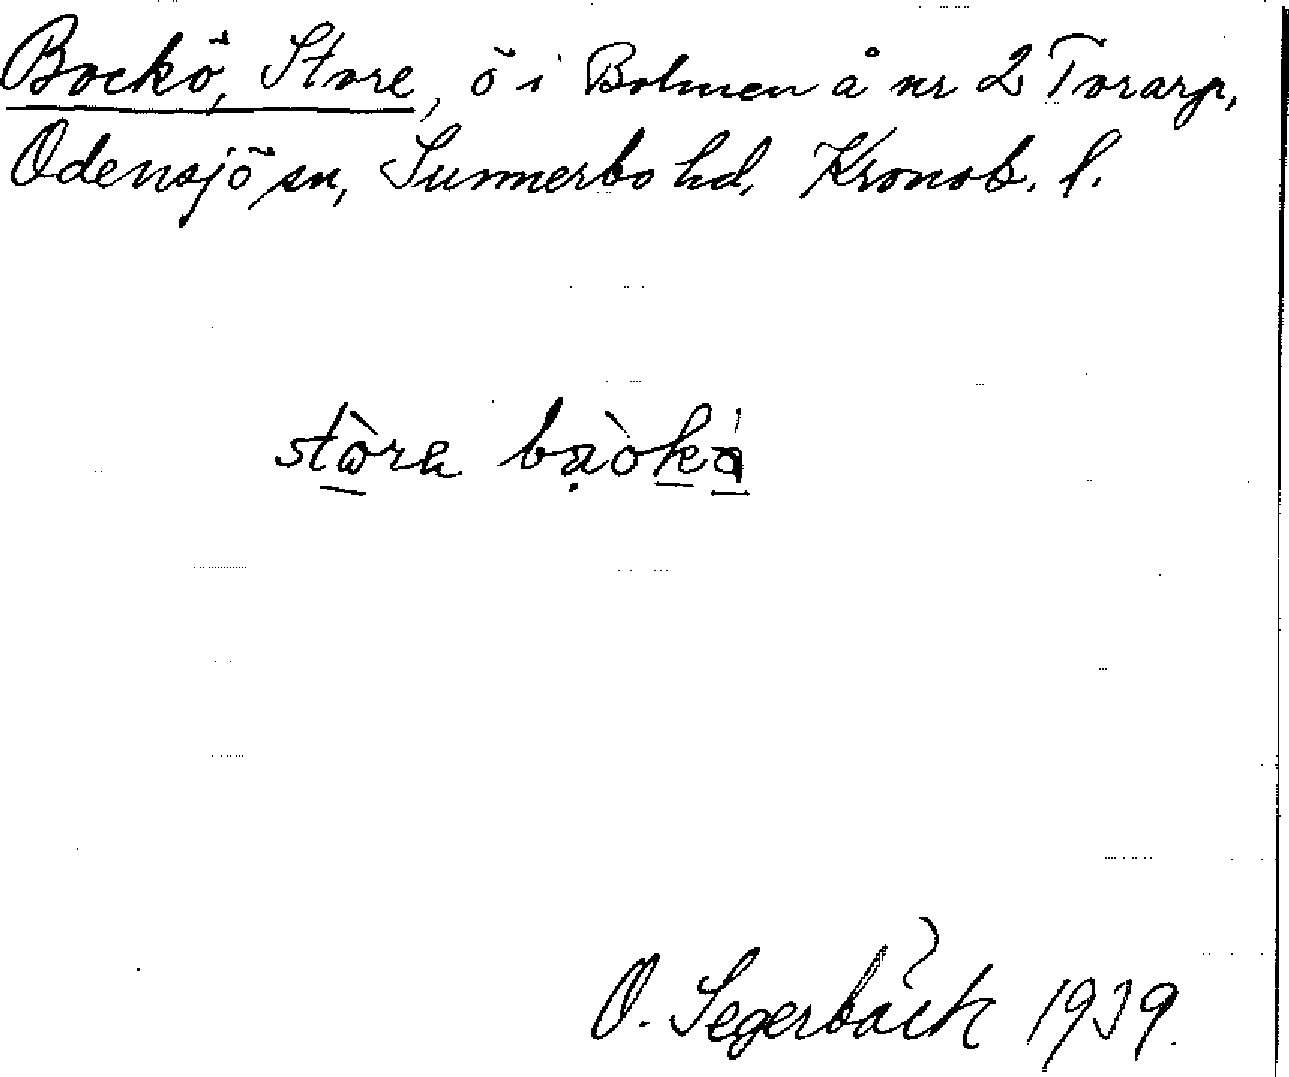 Bockö, Store, ö i Bolmen å nr 2 Torarp,
Odensjö sn, Sunnerbo hd, Kronob. l.
O. Segerbäck 1939.